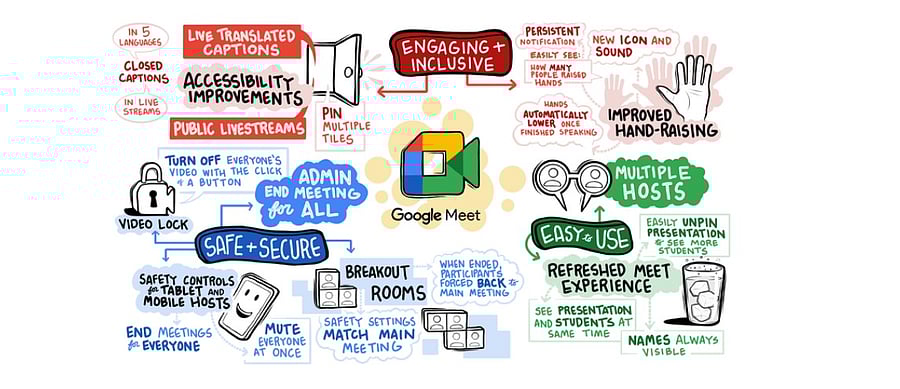 IN 5
LANGUAGES
CLOSED
CAPTIONS
IN LIVE
STREAMS
LIVE TRANSLATED
CAPTIONS
ACCESSIBILITY
IMPROVEMENTS
PUBLIC LIVESTREAMS
PIN
MULTIPLE
TILES
ENGAGING +
INCLUSIVE
PERSISTENT
NOTIFICATION
EASILY SEE:
HOW MANY
PEOPLE RAISED
HANDS
NEW ICON AND
SOUND
HANDS
AUTOMATICALLY
LOWER ONCE
FINISHED SPEAKING
IMPROVED
HAND-RAISING
Google Meet
TURN OFF EVERYONE'S
VIDEO WITH THE CLICK
of A BUTTON
VIDEO LOCK
ADMIN
END MEETING
for ALL
SAFE + SECURE
SAFETY CONTROLS
for TABLET AND
MOBILE HOSTS
END MEETINGS
for EVERYONE
MUTE
EVERYONE
AT ONCE
BREAKOUT
ROOMS
WHEN ENDED,
PARTICIPANTS
FORCED BACK to
MAIN MEETING
SAFETY SETTINGS
MATCH MAIN
MEETING
MULTIPLE
HOSTS
EASY to USE
EASILY UNPIN
PRESENTATION
to SEE MORE
STUDENTS
REFRESHED MEET
EXPERIENCE
SEE PRESENTATION
AND STUDENTS AT
SAME TIME
NAMES ALWAYS
VISIBLE